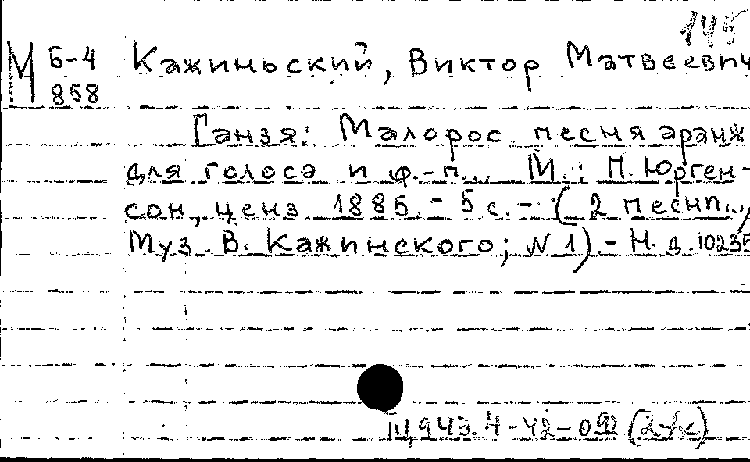 145
М Б-4 Кажиньский, Виктор Матвеевич
858
Ганзя: Малорос. песня аранж
для голоса и ф.-п.. М.: П. Юрген-
сон, ценз 1885. - 5 с. - ( 2 песни..
Муз В. Кажинского; N 1) - Н. д 10235
43.4-42-